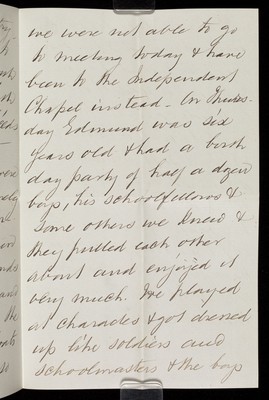 we were not able to go
to meeting today & have
been to the Independent
Chapel instead - On Thurs-
day Edmund was six
years old & had a birth
day party of half a dozen
boys, his schoolfellows &
some others we knew &
they pulled each other
about and enjoyed it
very much. We played
at charades & got dressed
up like soldiers and
schoolmasters & the boys